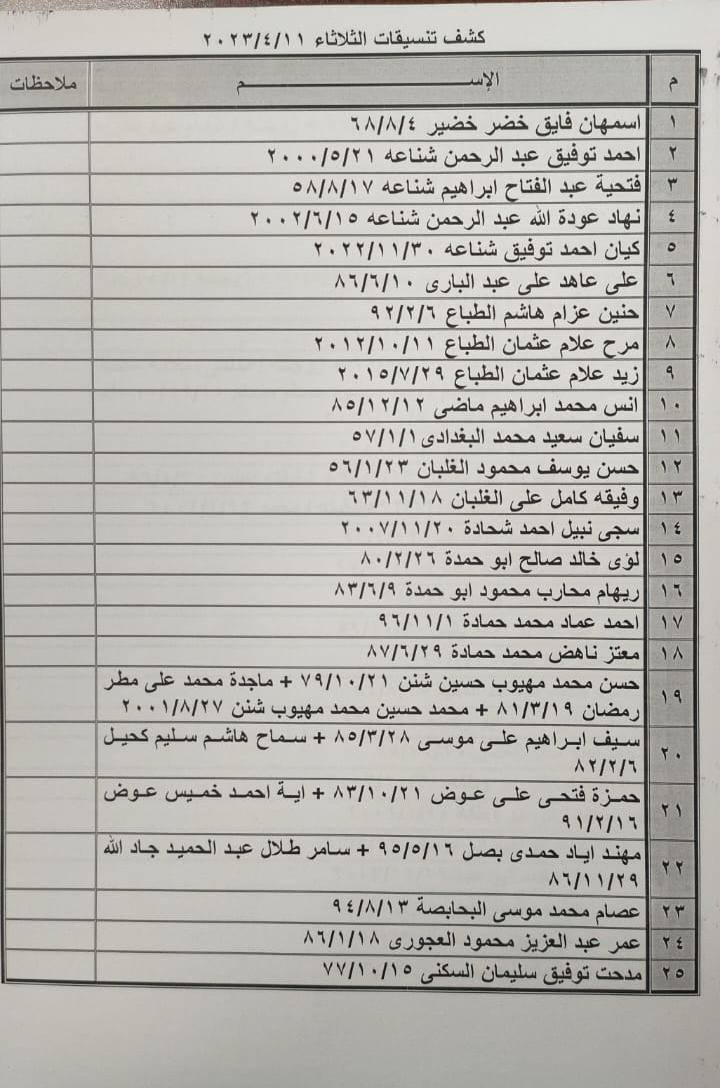 كشف تنسيقات الثلاثاء ٢٠٢٣/٤/١١
م الإســـم ملاحظات
١ اسمهان فايق خضر خضير ٦٨/٨/٤
٢ احمد توفيق عبد الرحمن شناعه ٢٠٠٠/٥/٢١
٣ فتحية عبد الفتاح ابراهيم شناعه ٥٨/٨/١٧
٤ نهاد عودة الله عبد الرحمن شناعه ٢٠٠٢/٦/١٥
٥ كيان احمد توفيق شناعه ٢٠٢٢/١١/٣٠
٦ على عاهد على عبد البارى ٨٦/٦/١٠
٧ حنين عزام هاشم الطباع ٩٢/٢/٦
٨ مرح علام عثمان الطباع ٢٠١٢/١٠/١١
٩ زيد علام عثمان الطباع ٢٠١٥/٧/٢٩
١٠ انس محمد ابراهيم ماضى ٨٥/١٢/١٢
١١ سفيان سعيد محمد البغدادى ٥٧/١/١
١٢ حسن يوسف محمود الغلبان ٥٦/١/٢٣
١٣ وفيقه كامل على الغلبان ٦٣/١١/١٨
١٤ سجى نبيل احمد شحادة ٢٠٠٧/١١/٢٠
١٥ لؤى خالد صالح ابو حمدة ٨٠/٢/٢٦
١٦ ريهام محارب محمود ابو حمدة ٨٣/٦/٩
١٧ احمد عماد محمد حمادة ٩٦/١١/١
١٨ معتز ناهض محمد حمادة ٨٧/٦/٢٩
١٩ حسن محمد مهيوب حسين شنن ٧٩/١٠/٢١ + ماجدة محمد على مطر
رمضان ٨١/٣/١٩ + محمد حسين محمد مهيوب شنن ٢٠٠١/٨/٢٧
٢٠ سيف ابراهيم على موسى ٨٥/٣/٢٨ + سماح هاشم سليم كحيل
٨٢/٢/٦
٢١ حمزة فتحى على عوض ٨٣/١٠/٢١ + اية احمد خميس عوض
٩١/٢/١٦
٢٢ مهند اياد حمدى بصل ٩٥/٥/١٦ + سامر طلال عبد الحميد جاد الله
٨٦/١١/٢٩
٢٣ عصام محمد موسى البحابصة ٩٤/٨/١٣
٢٤ عمر عبد العزيز محمود العجورى ٨٦/١/١٨
٢٥ مدحت توفيق سليمان السكنى ٧٧/١٠/١٥